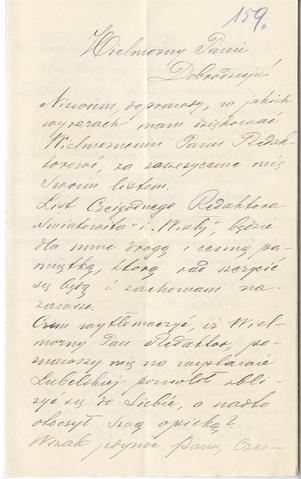 159.
Wielmożny Panie
Dobrodzieju!
Niewiem doprawdy, w jakich
wyrazach mam dziękować
Wielmożnemu Panu Redak-
torowi, za zaszczycenie mię
Swoim listem.
List Czcigodnego Redaktora
"Światowita" i "Wisły", będzie
dla mnie drogą i cenną pa-
miątką, którą rad szczycić
się będę i zachowam na-
zawsze.
Czem wytłomaczyć, iż Wiel-
możny Pan Redaktor, po-
znawszy mię na wystawie
Lubelskiej pozwolił zbli-
żyć się do Siebie, a nadto
otoczył Swą opieką?
Wszak jedynie Panu Czci-